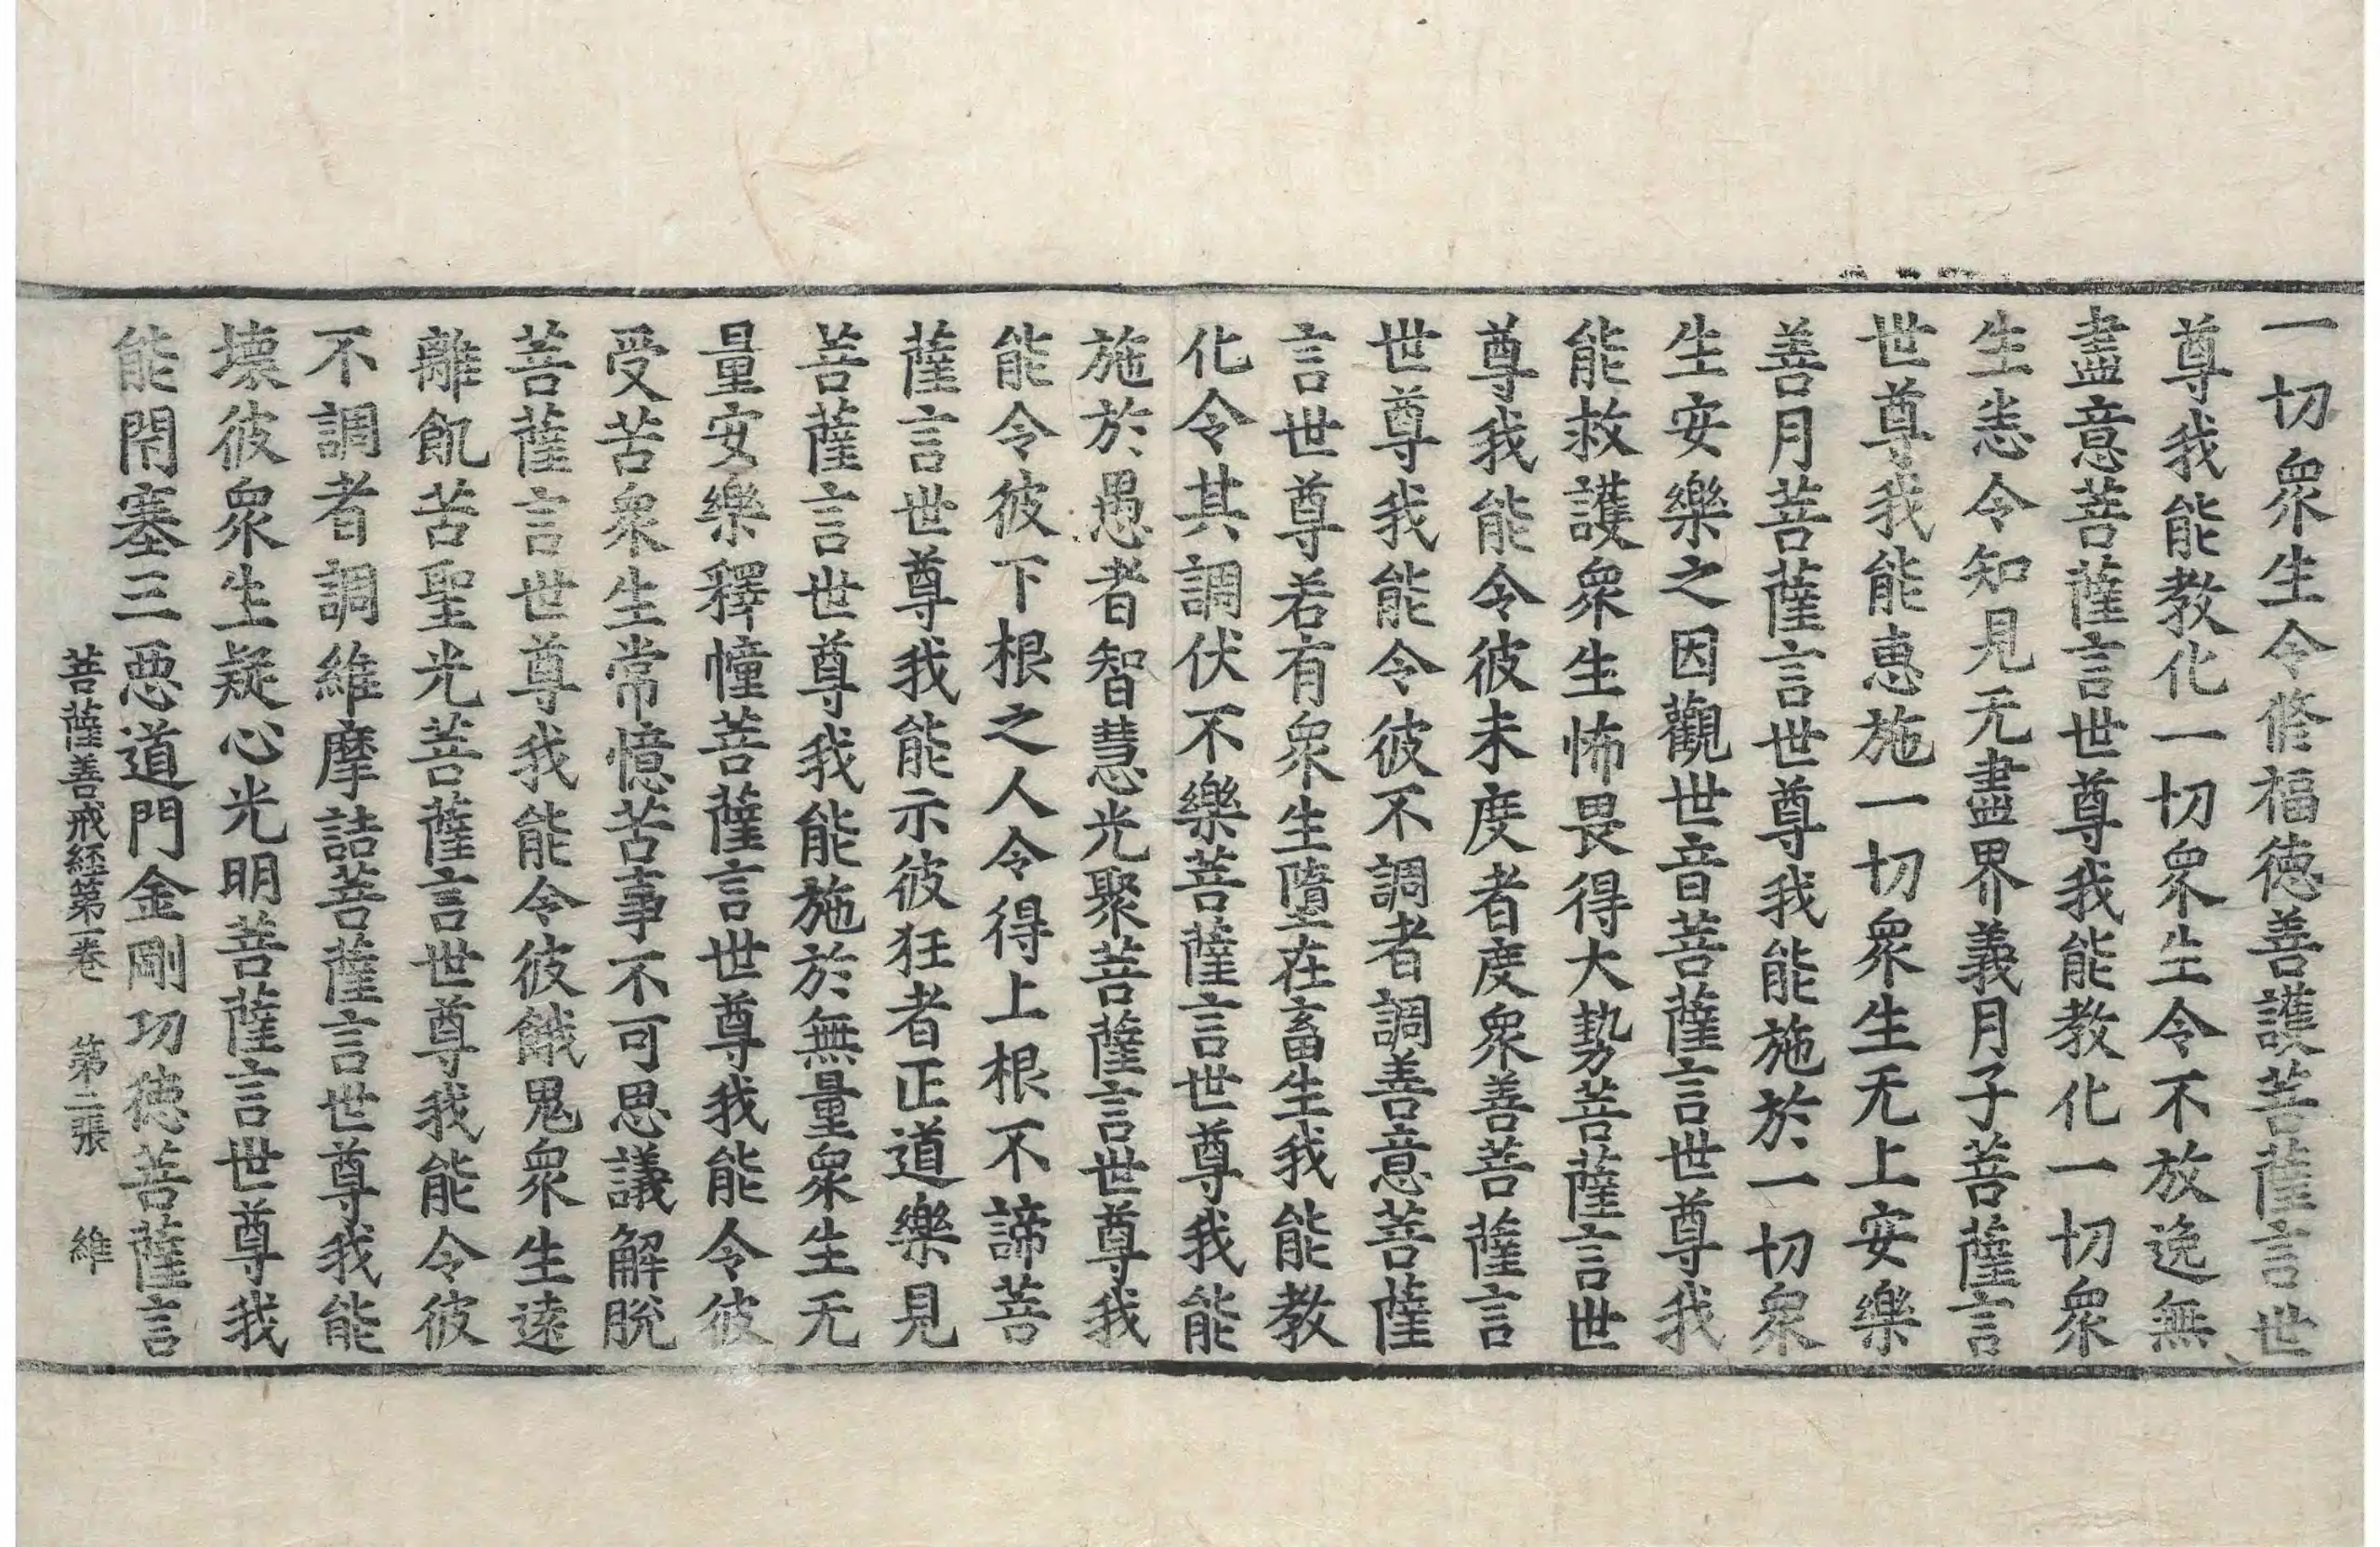 一切衆生令修福徳善護菩薩言世
尊我能教化一切衆生令不放逸無
盡意菩薩言世尊我能教化一切衆
生恙令知見无盡界義月子菩薩言
世尊我能惠施一切衆生无上安樂
善月菩薩言世尊我能施於一切衆
生安樂之因觀世音菩薩言世尊我
能救護衆生怖畏得大勢菩薩言世
尊我能令彼未度者度衆善菩薩言
世尊我能令彼不調者調善意菩薩
言世尊若有衆生墮在畜生我能教
化令其調伏不樂菩薩言世尊我能
施於愚者智慧光聚菩薩言世尊我
能令彼下根之人令得上根不諦菩
薩言世尊我能示彼狂者正道樂見
菩薩言世尊我能施於無量衆生无
量安樂釋幢菩薩言世尊我能令彼
受苦衆生常憶苦事不可思議解脫
菩薩言世尊我能令彼餓鬼衆生遠
離飢苦聖光菩薩言世尊我能令彼
不調者調維摩詰菩薩言世尊我能
壞彼衆生疑心光明菩薩言世尊我
能閇塞三惡道門金剛功徳菩薩言
菩薩善戒經第一卷 第二張 維